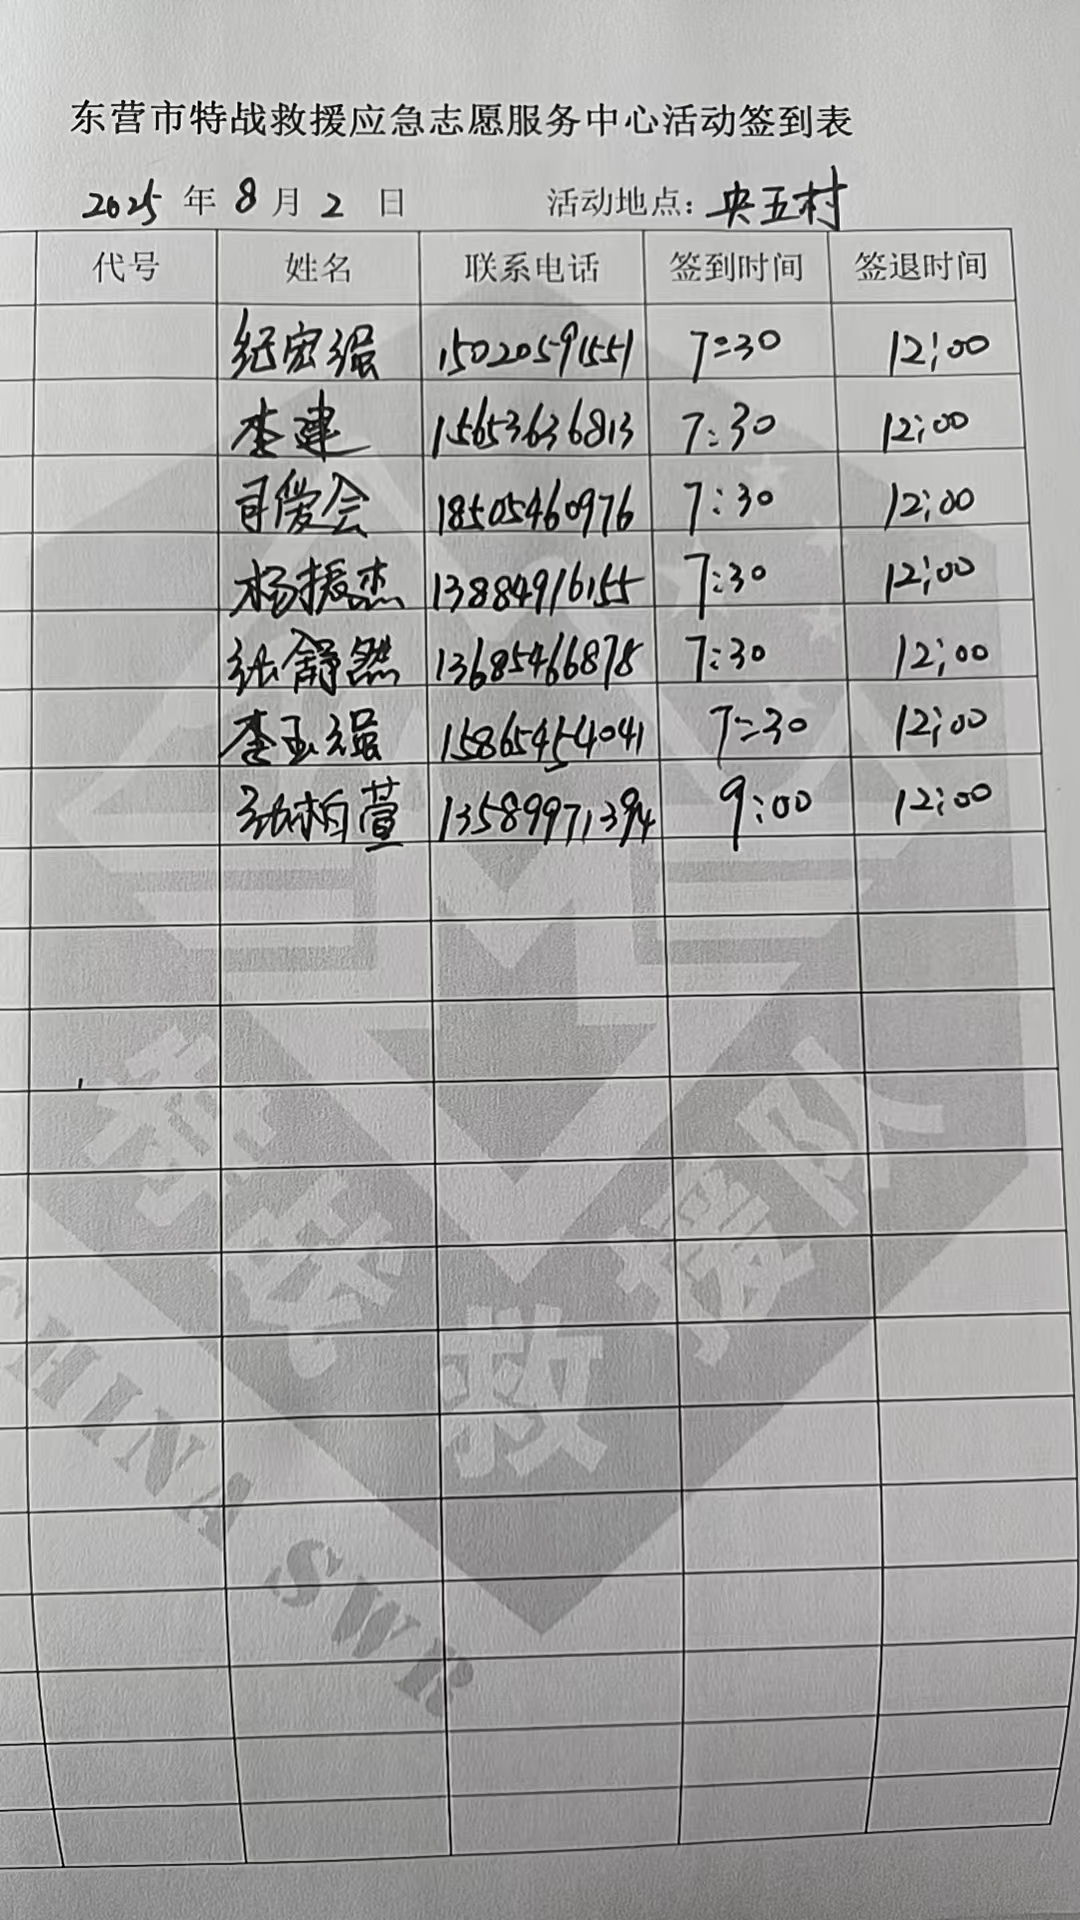 东营市特战救援应急志愿服务中心活动签到表
2025 年 8 月 2 日 活动地点: 央五村
代号 姓名 联系电话 签到时间 签退时间
纪宏强 15020591551 7:30 12:00
李建 15653636813 7:30 12:00
司爱会 18505460976 7:30 12:00
杨振杰 13884916155 7:30 12:00
张舒然 13685466878 7:30 12:00
李玉强 15865454041 7:30 12:00
柏萱 13589971394 9:00 12:00
特战救援队
CHINA SWR